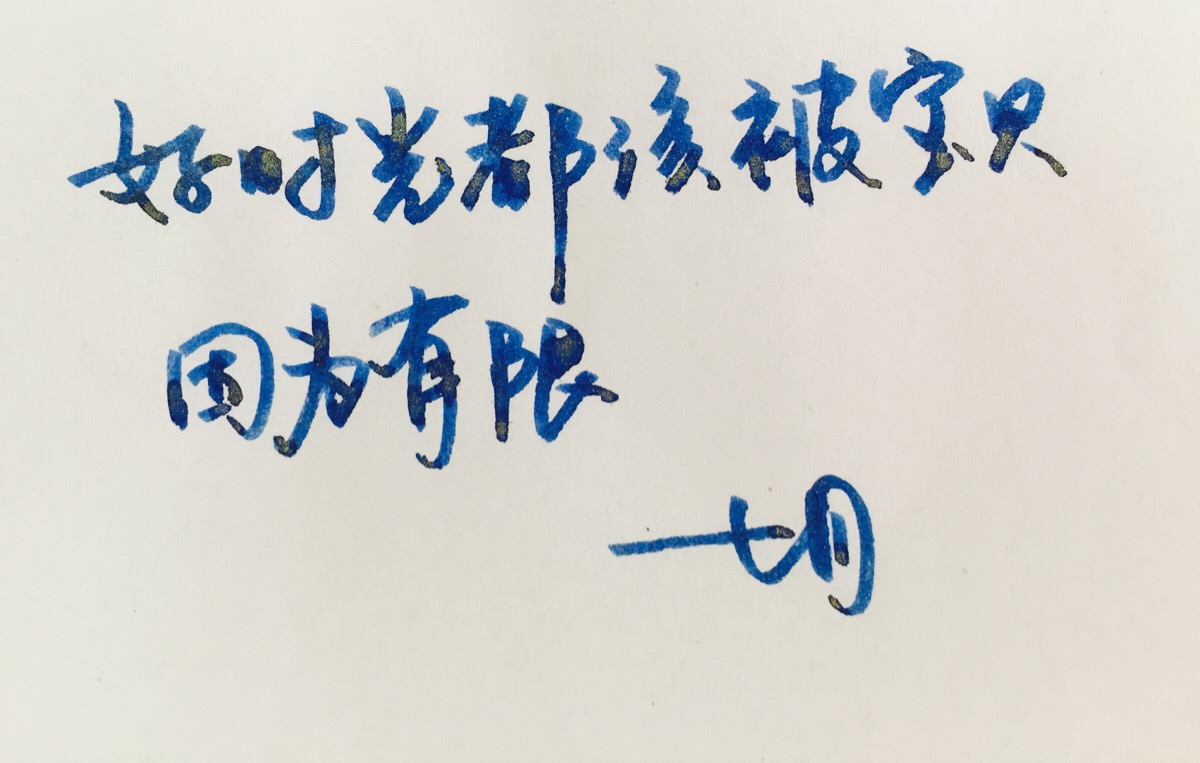 好时光都该被宝贝
因为有限
七月